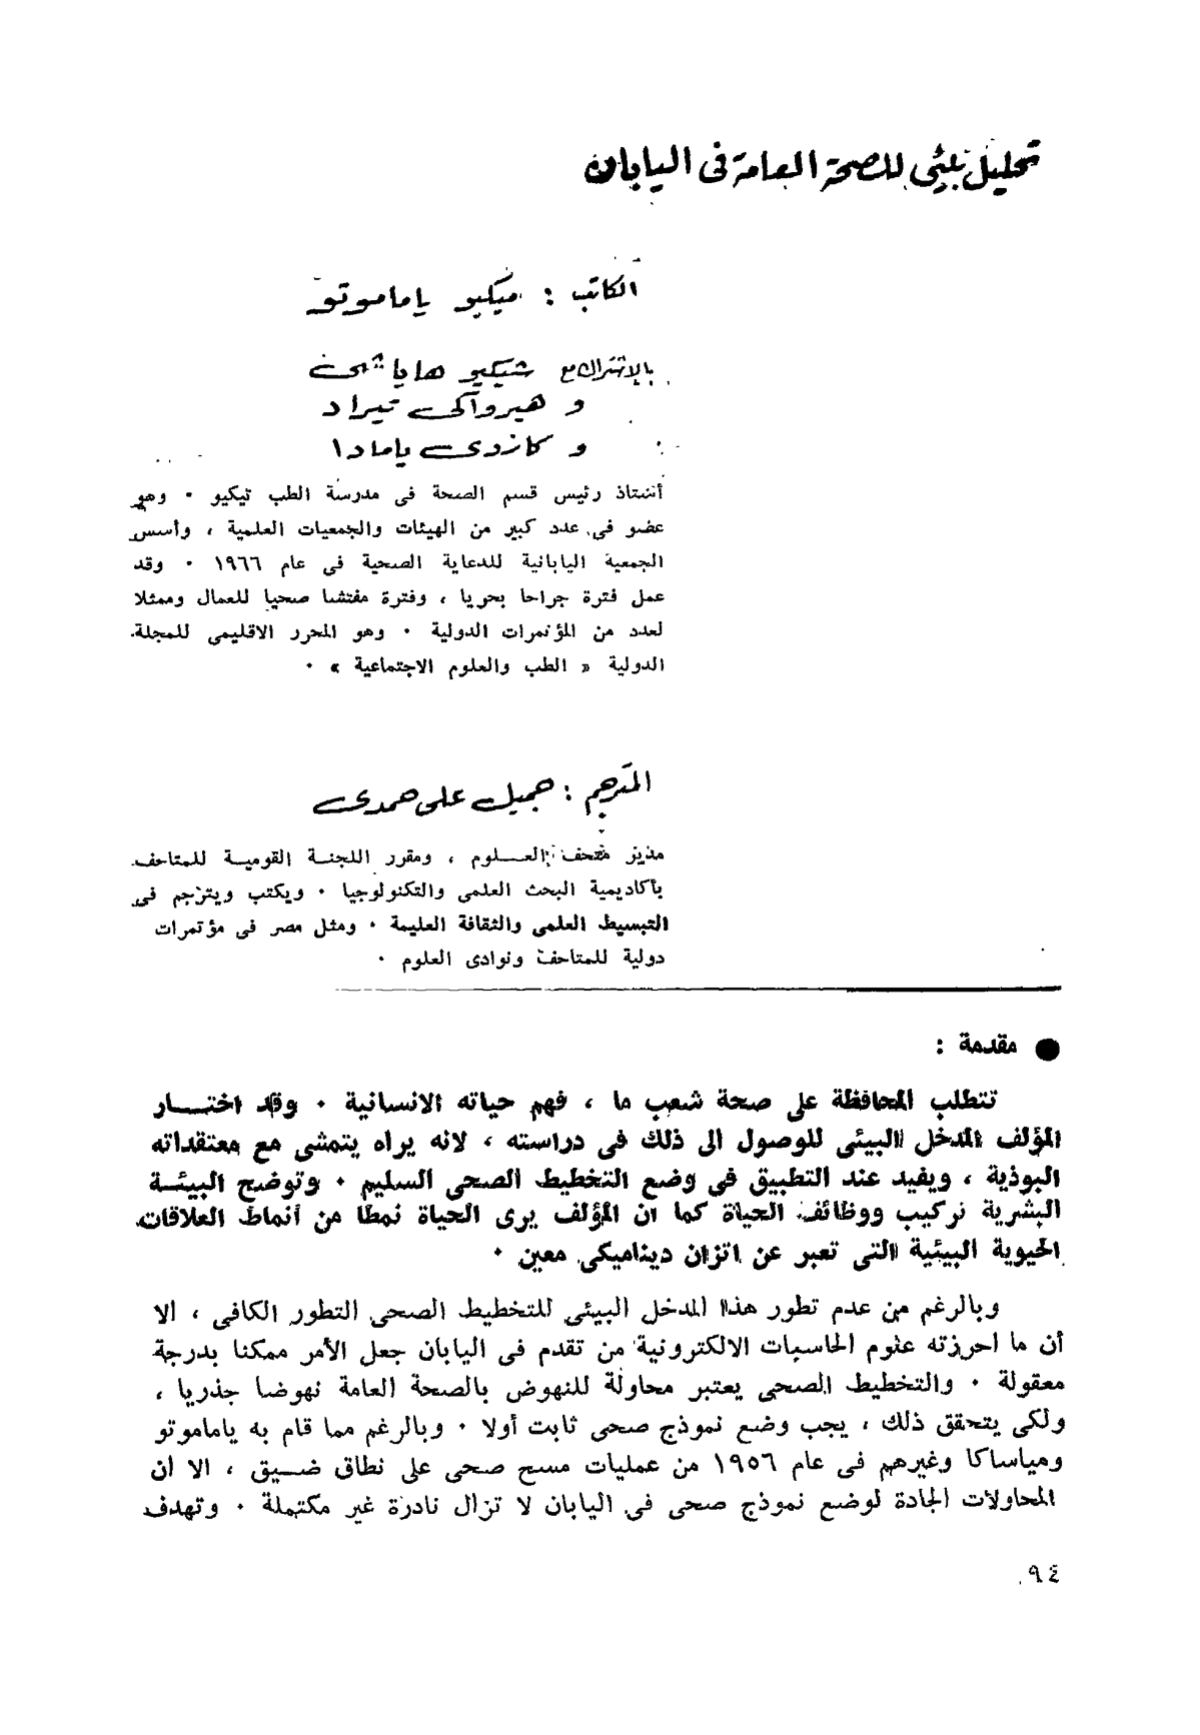 تحليل بيئى للصحة العامة فى اليابان
الكاتب : ميكيو ياماموتو
بالاشتراك مع شيكيو هاياشى
و هيرواكى تيراد
و كازوى يامادا
أستاذ رئيس قسم الصحة فى مدرسة الطب تيكيو ٠ وهو
عضو فى عدد كبير من الهيئات والجمعيات العلمية ، وأسس
الجمعية اليابانية للدعاية الصحية فى عام ١٩٦٦ ٠ وقد
عمل فترة جراحا بحريا ، وفترة مفتشا صحيا للعمال وممثلا
لعدد من المؤتمرات الدولية ٠ وهو المحرر الاقليمى للمجلة
الدولية « الطب والعلوم الاجتماعية » ٠
المترجم : جميل على حمدى
مدير متحف العـــلوم ، ومقرر اللجنــة القوميــة للمتاحف
بأكاديمية البحث العلمى والتكنولوجيا ٠ ويكتب ويترجم فى
التبسيط العلمى والثقافة العليمة ٠ ومثل مصر فى مؤتمرات
دولية للمتاحف ونوادى العلوم ٠
● مقدمة :
تتطلب المحافظة على صحة شعب ما ، فهم حياته الانسانية ٠ وقد اختـــار
المؤلف المدخل البيئى للوصول الى ذلك فى دراسته ، لانه يراه يتمشى مع معتقداته
البوذية ، ويفيد عند التطبيق فى وضع التخطيط الصحى السليم ٠ وتوضح البيئــة
البشرية تركيب ووظائف الحياة كما ان المؤلف يرى الحياة نمطا من أنماط العلاقات
الحيوية البيئية التى تعبر عن اتزان ديناميكى معين ٠
وبالرغم من عدم تطور هذا المدخل البيئى للتخطيط الصحى التطور الكافى ، الا
أن ما احرزته علوم الحاسبات الالكترونية من تقدم فى اليابان جعل الأمر ممكنا بدرجة
معقولة ٠ والتخطيط الصحى يعتبر محاولة للنهوض بالصحة العامة نهوضا جذريا ،
ولكى يتحقق ذلك ، يجب وضع نموذج صحى ثابت أولا ٠ وبالرغم مما قام به ياماموتو
ومياساكا وغيرهم فى عام ١٩٥٦ من عمليات مسح صحى على نطاق ضــيق ، الا ان
المحاولات الجادة لوضع نموذج صحى فى اليابان لا تزال نادرة غير مكتملة ٠ وتهدف
٩٤